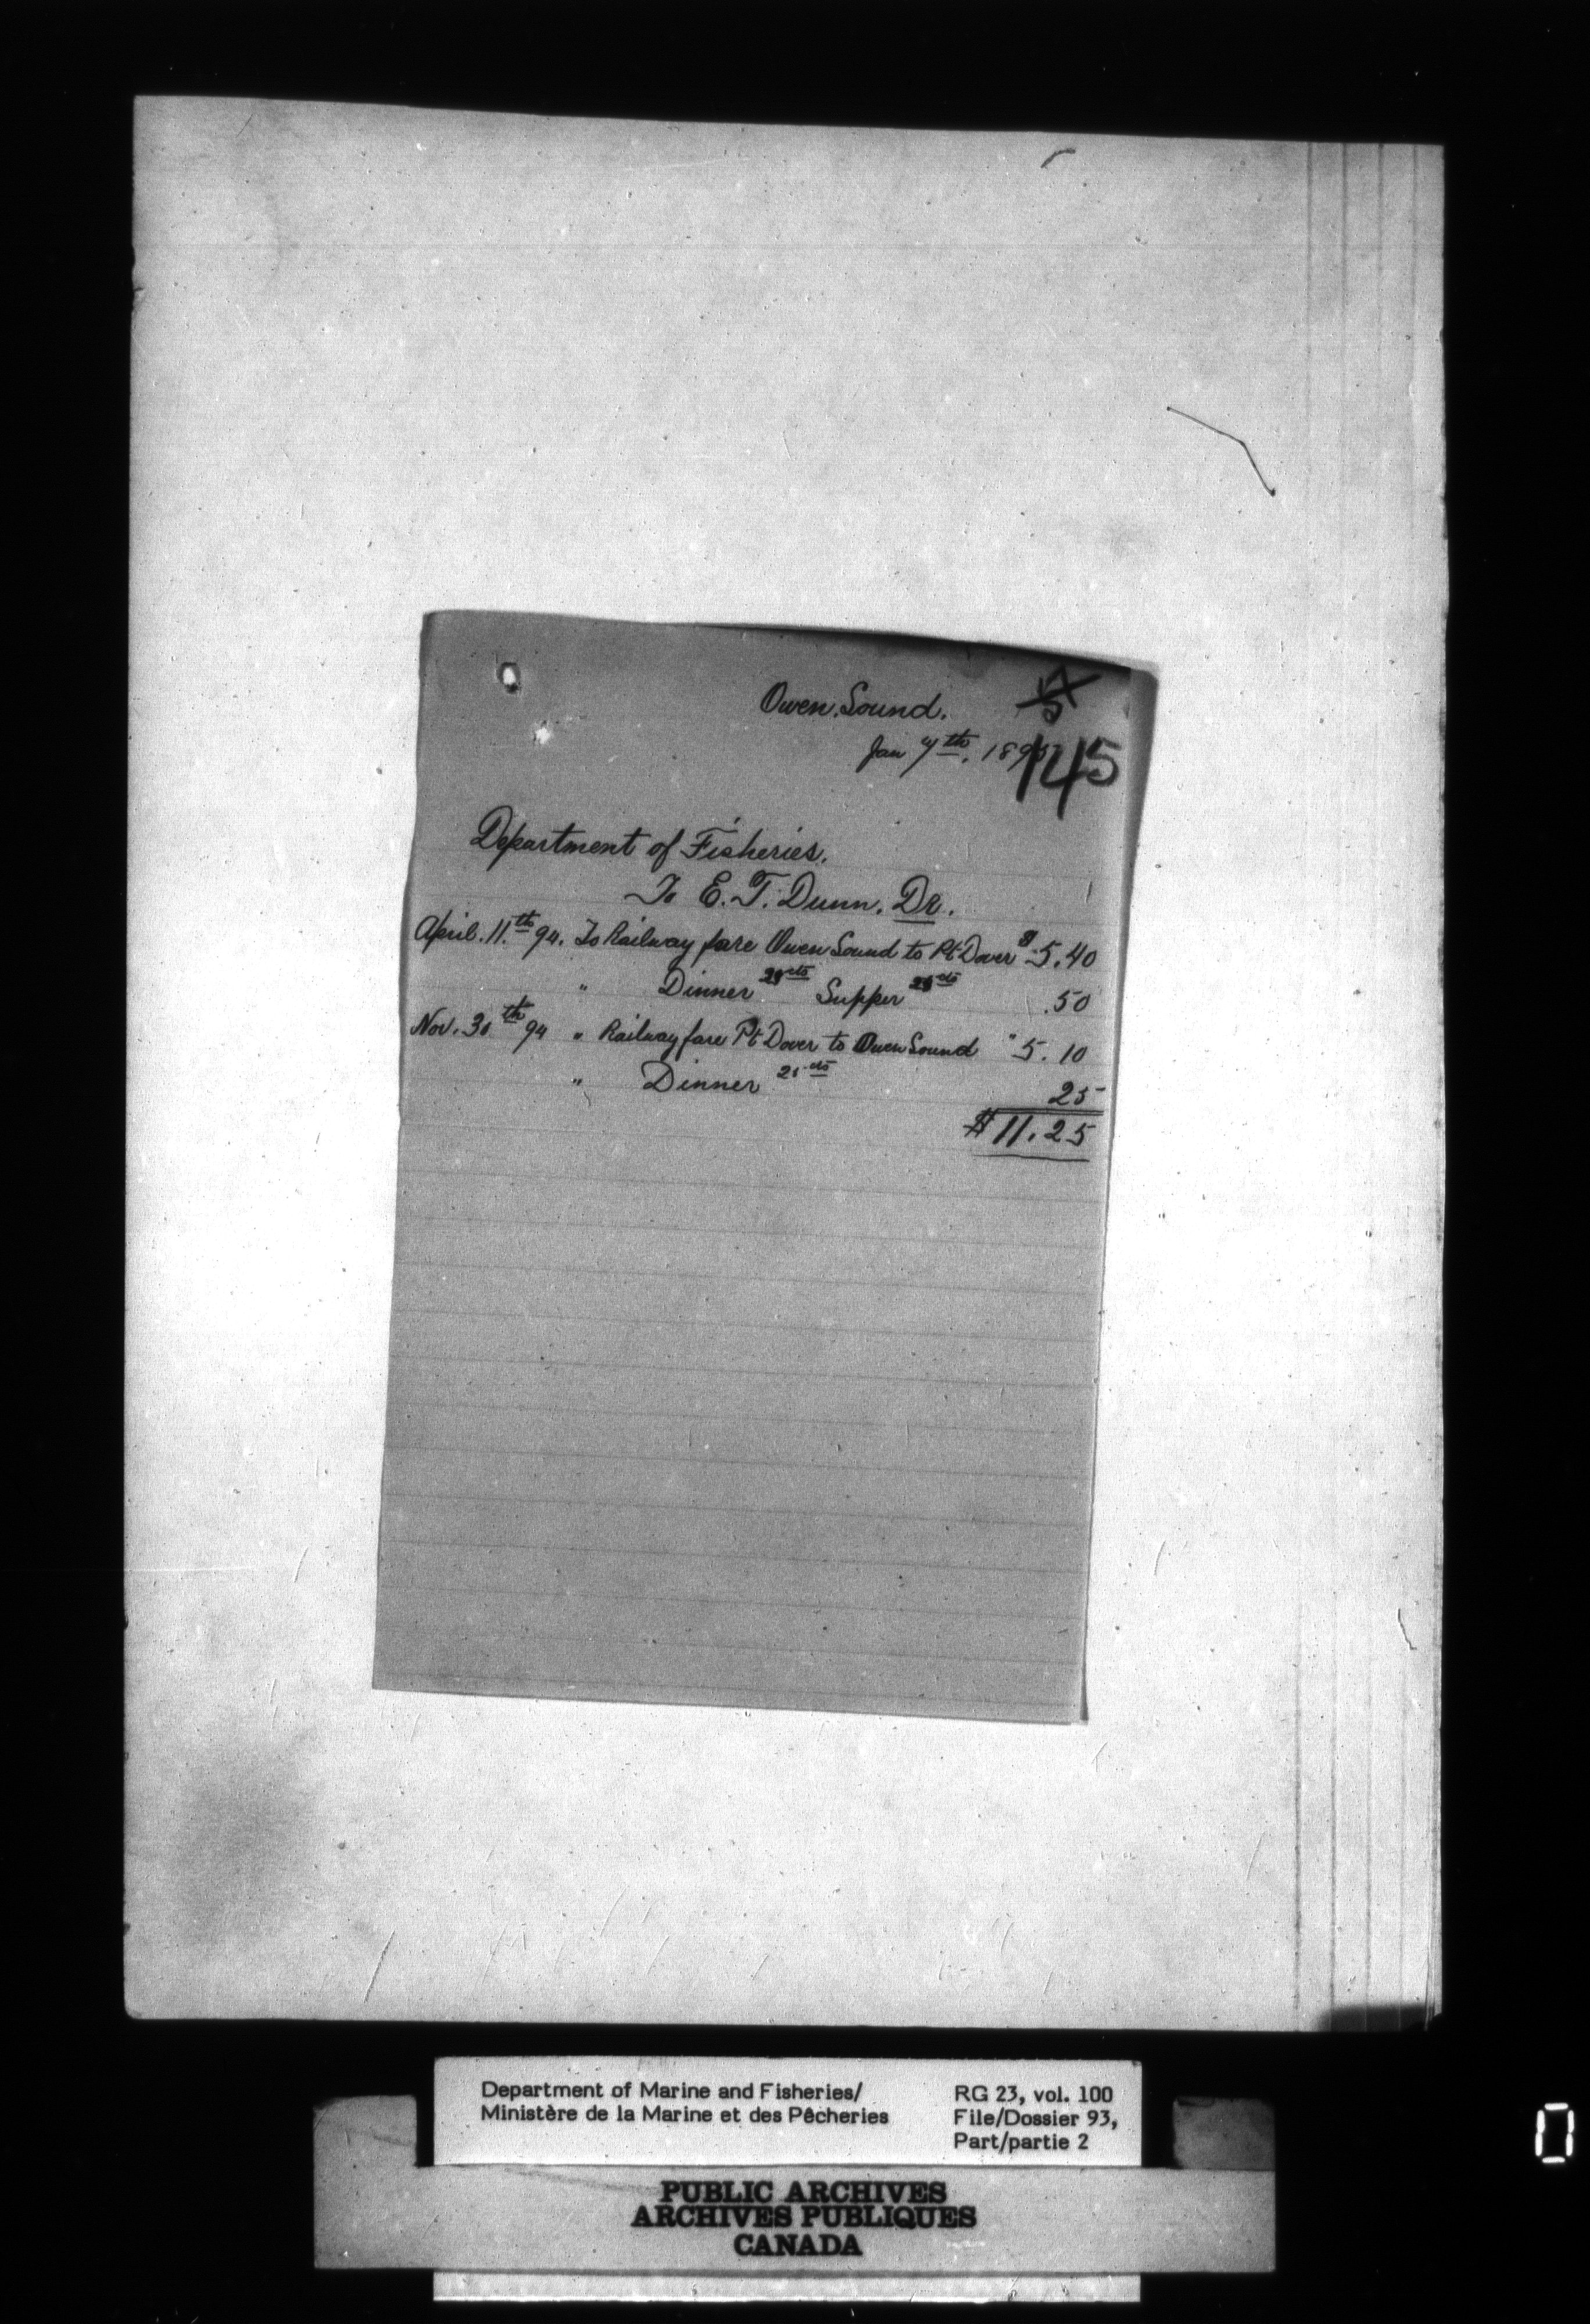 Owen Sound.
Jan 7th. 1895
145
Department of Fisheries.
To E. T. Dunn. Dr.
April. 11.th 94. To Railway fare Owen Sound to Pt Dover $5.40
" Dinner 25cts Supper 25cts .50
Nov. 30th 94 " Railway fare Pt Dover to Owen Sound " 5.10
" Dinner 25cts 25
$11.25
Department of Marine and Fisheries/
Ministère de la Marine et des Pêcheries
RG 23, vol. 100
File/Dossier 93,
Part/partie 2
PUBLIC ARCHIVES
ARCHIVES PUBLIQUES
CANADA
0